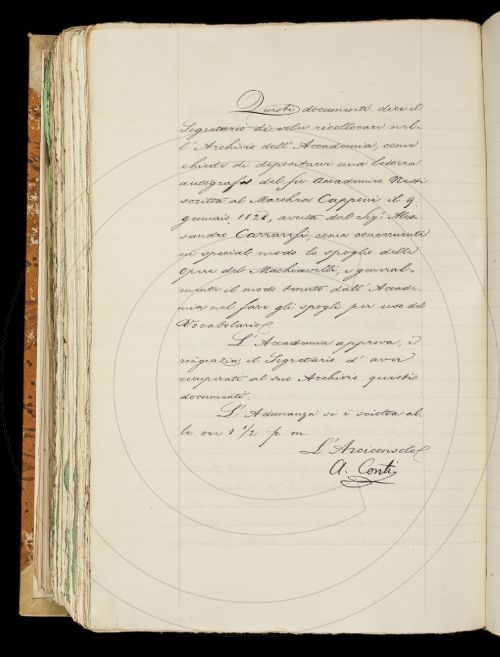 Questi documenti dice il
Segretario di voler ricollocare nel-
l'Archivio dell'Accademia, come
chiede di depositarvi una lettera
autografa del fu Accademico
scritta al Marchese Capponi il 9.
gennaio 1828, avuta dal Sig.r Ales-
sandro Carraresi, come concernente
in special modo lo spoglio delle
Opere del Machiavelli, e general-
mente il modo tenuto dall'Accade-
mia nel fare gli spogli per uso del
Vocabolario.
L'Accademia approva, e
ringrazia il Segretario d'aver
recuperati al suo Archivio questi
documenti.
L'Adunanza si è sciolta al-
le ore 1 1/2 p. m.
L'Arciconsolo
A. Conti